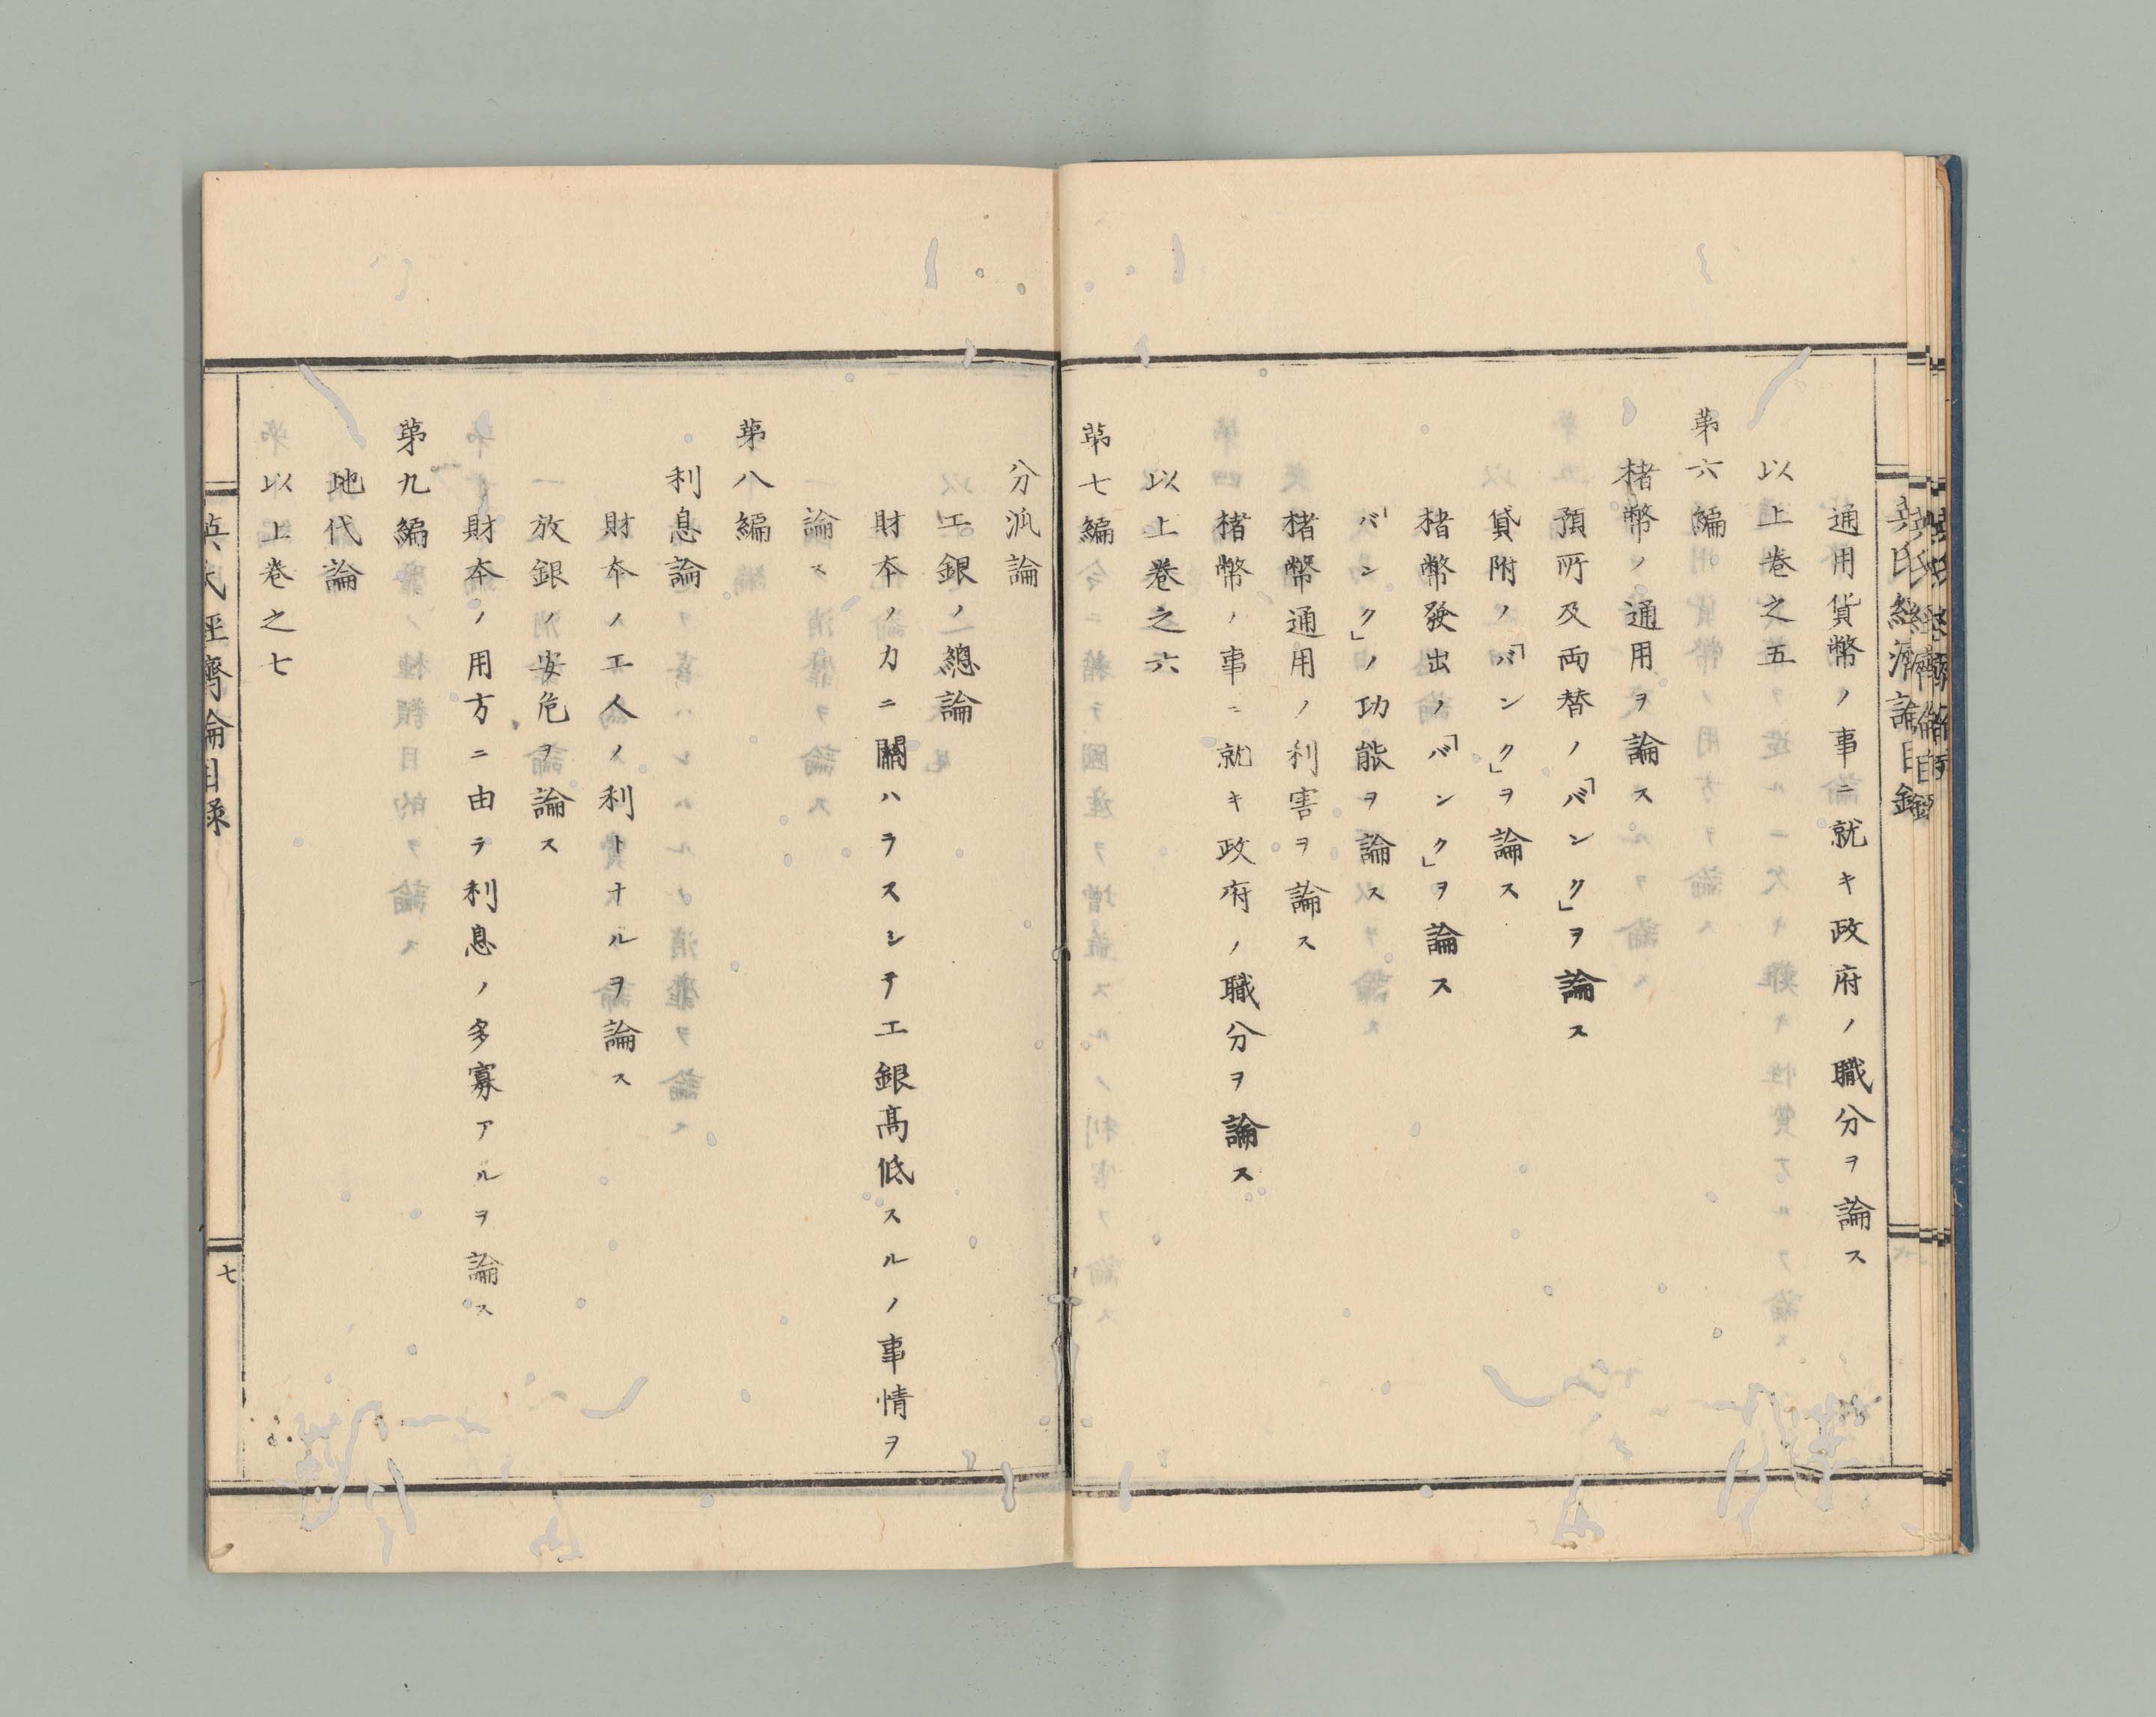 通用貨幣ノ事ニ就キ政府ノ職分ヲ論ス
以上巻之五
苐六編
楮幣ノ通用ヲ論ス
預所及両替ノ「バンク」ヲ論ス
貸附ノ「バンク」ヲ論ス
楮幣發出ノ「バンク」ヲ論ス
「バンク」ノ功能ヲ論ス
楮幣通用ノ利害ヲ論ス
楮幣ノ事ニ就キ政府ノ職分ヲ論ス
以上巻之六
苐七編
分派論
工銀ノ總論
財本ノカニ關ハラスシテ工銀髙低スルノ事情ヲ
論ス
苐八編
利息論
財本ノ工人ノ利トナルヲ論ス
放銀ノ安危ヲ論ス
財本ノ用方ニ由テ利息ノ多寡アルヲ論ス
苐九編
地代論
以上巻之七
英氏経濟論目録
七